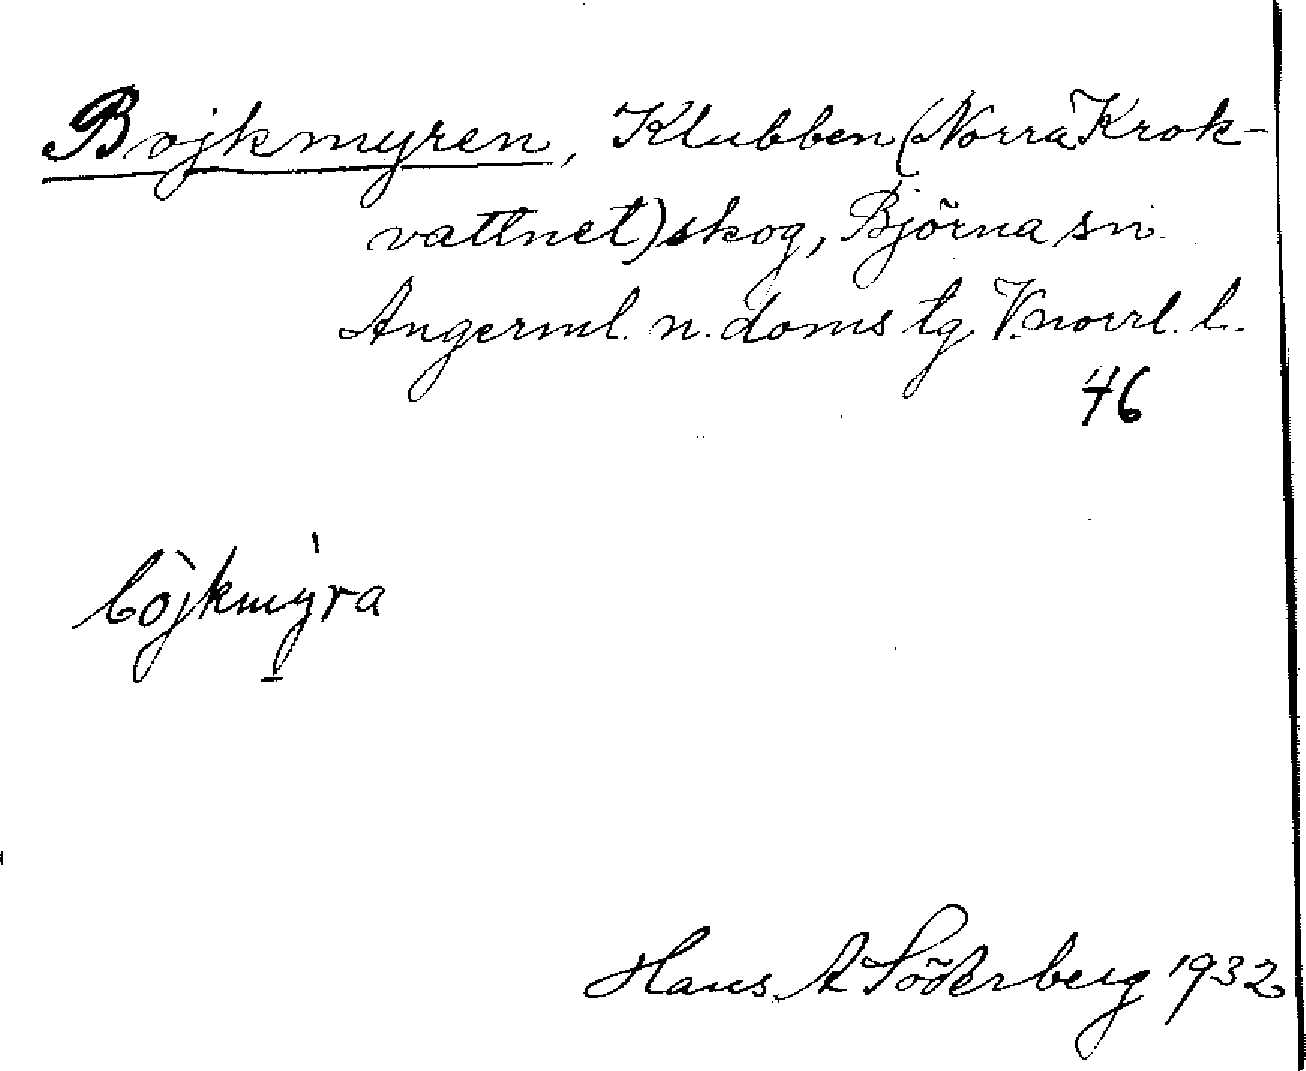 Bojkmyren, Klubben (Norra Krok-
vattnet) skog, Björna sn
Angerml. n. doms tg. V.norrl. l.
46
bòjkmỳ̱ra
Hans A Söderberg 1932